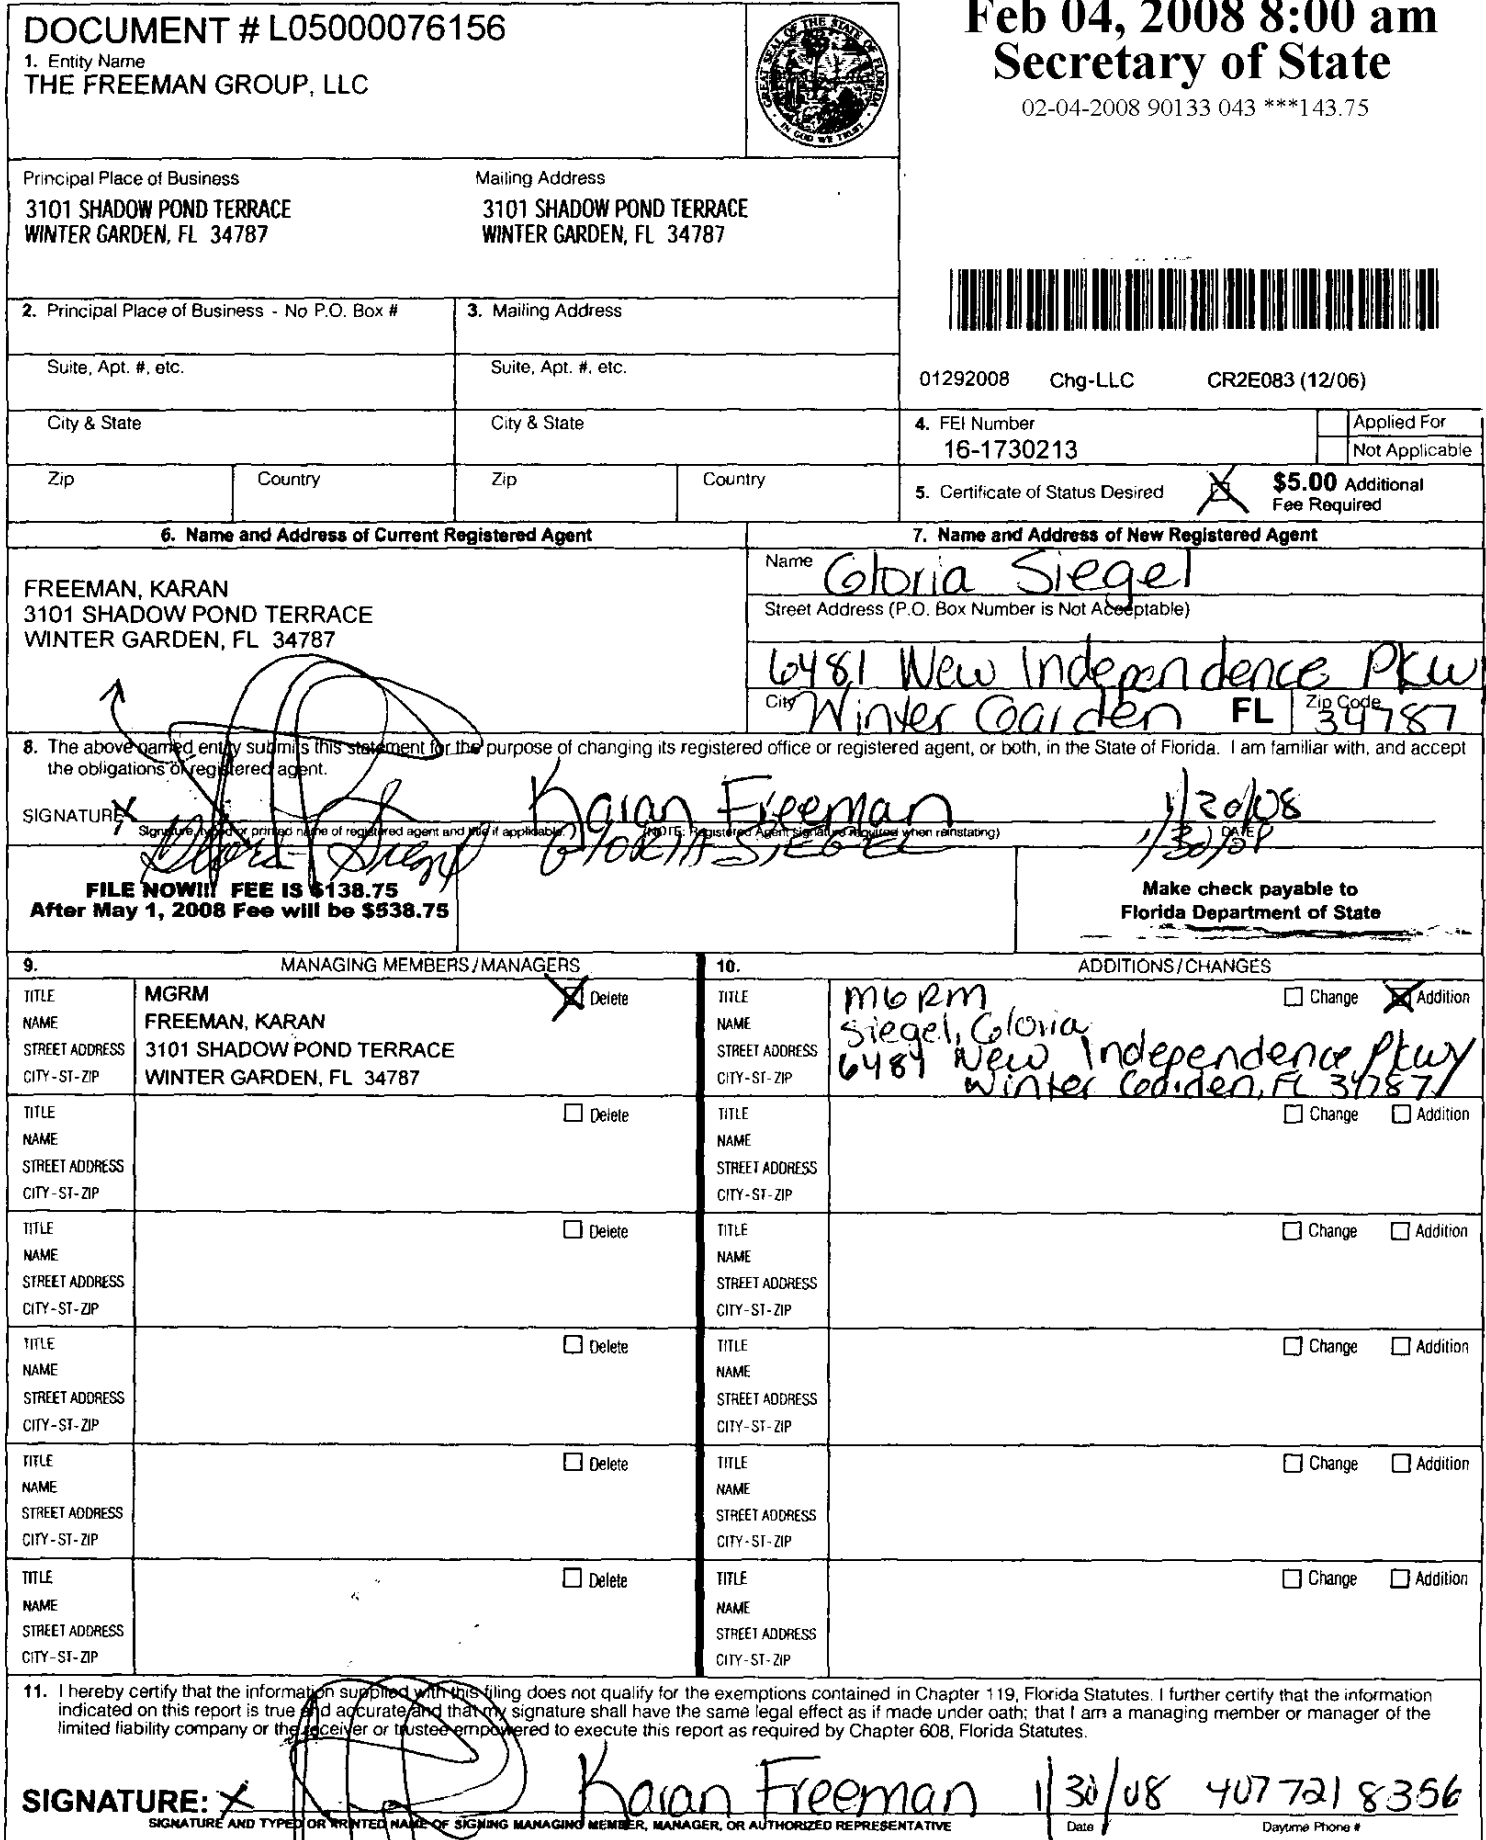 DOCUMENT # L05000076156
1. Entity Name
THE FREEMAN GROUP, LLC
GREAT SEAL OF THE STATE OF FLORIDA
IN GOD WE TRUST
Feb 04, 2008 8:00 am
Secretary of State
02-04-2008 90133 043 ***143.75
Principal Place of Business
3101 SHADOW POND TERRACE
WINTER GARDEN, FL 34787
Mailing Address
3101 SHADOW POND TERRACE
WINTER GARDEN, FL 34787
2. Principal Place of Business - No P.O. Box #
3. Mailing Address
Suite, Apt. #, etc.
Suite, Apt. #, etc.
City & State
City & State
Zip
Country
Zip
Country
01292008 Chg-LLC CR2E083 (12/06)
4. FEI Number
16-1730213
Applied For
Not Applicable
5. Certificate of Status Desired
$5.00 Additional
Fee Required
6. Name and Address of Current Registered Agent
FREEMAN, KARAN
3101 SHADOW POND TERRACE
WINTER GARDEN, FL 34787
7. Name and Address of New Registered Agent
Name Gloria Siegel
Street Address (P.O. Box Number is Not Acceptable)
6481 New Independence Pkw
City Winter Garden FL Zip Code 34787
8. The above named entity submits this statement for the purpose of changing its registered office or registered agent, or both, in the State of Florida. I am familiar with, and accept
the obligations of registered agent.
SIGNATURE X Karan Freeman 1/30/08
Signature, typed or printed name of registered agent and title if applicable. (NOTE: Registered Agent signature required when reinstating) DATE
Gloria Siegel GLORIA SIEGEL 1/30/08
FILE NOW!!! FEE IS $138.75
After May 1, 2008 Fee will be $538.75
Make check payable to
Florida Department of State
9. MANAGING MEMBERS/MANAGERS
TITLE MGRM Delete
NAME FREEMAN, KARAN
STREET ADDRESS 3101 SHADOW POND TERRACE
CITY-ST-ZIP WINTER GARDEN, FL 34787
TITLE Delete
NAME
STREET ADDRESS
CITY-ST-ZIP
TITLE Delete
NAME
STREET ADDRESS
CITY-ST-ZIP
TITLE Delete
NAME
STREET ADDRESS
CITY-ST-ZIP
TITLE Delete
NAME
STREET ADDRESS
CITY-ST-ZIP
TITLE Delete
NAME
STREET ADDRESS
CITY-ST-ZIP
10. ADDITIONS/CHANGES
TITLE MGRM Change Addition
NAME Siegel, Gloria
STREET ADDRESS 6481 New Independence Pkwy
CITY-ST-ZIP Winter Garden, FL 34787
TITLE Change Addition
NAME
STREET ADDRESS
CITY-ST-ZIP
TITLE Change Addition
NAME
STREET ADDRESS
CITY-ST-ZIP
TITLE Change Addition
NAME
STREET ADDRESS
CITY-ST-ZIP
TITLE Change Addition
NAME
STREET ADDRESS
CITY-ST-ZIP
TITLE Change Addition
NAME
STREET ADDRESS
CITY-ST-ZIP
11. I hereby certify that the information supplied with this filing does not qualify for the exemptions contained in Chapter 119, Florida Statutes. I further certify that the information
indicated on this report is true and accurate and that my signature shall have the same legal effect as if made under oath; that I am a managing member or manager of the
limited liability company or the receiver or trustee empowered to execute this report as required by Chapter 608, Florida Statutes.
SIGNATURE: X Karan Freeman 1/30/08 407 721 8356
SIGNATURE AND TYPED OR PRINTED NAME OF SIGNING MANAGING MEMBER, MANAGER, OR AUTHORIZED REPRESENTATIVE Date Daytime Phone #